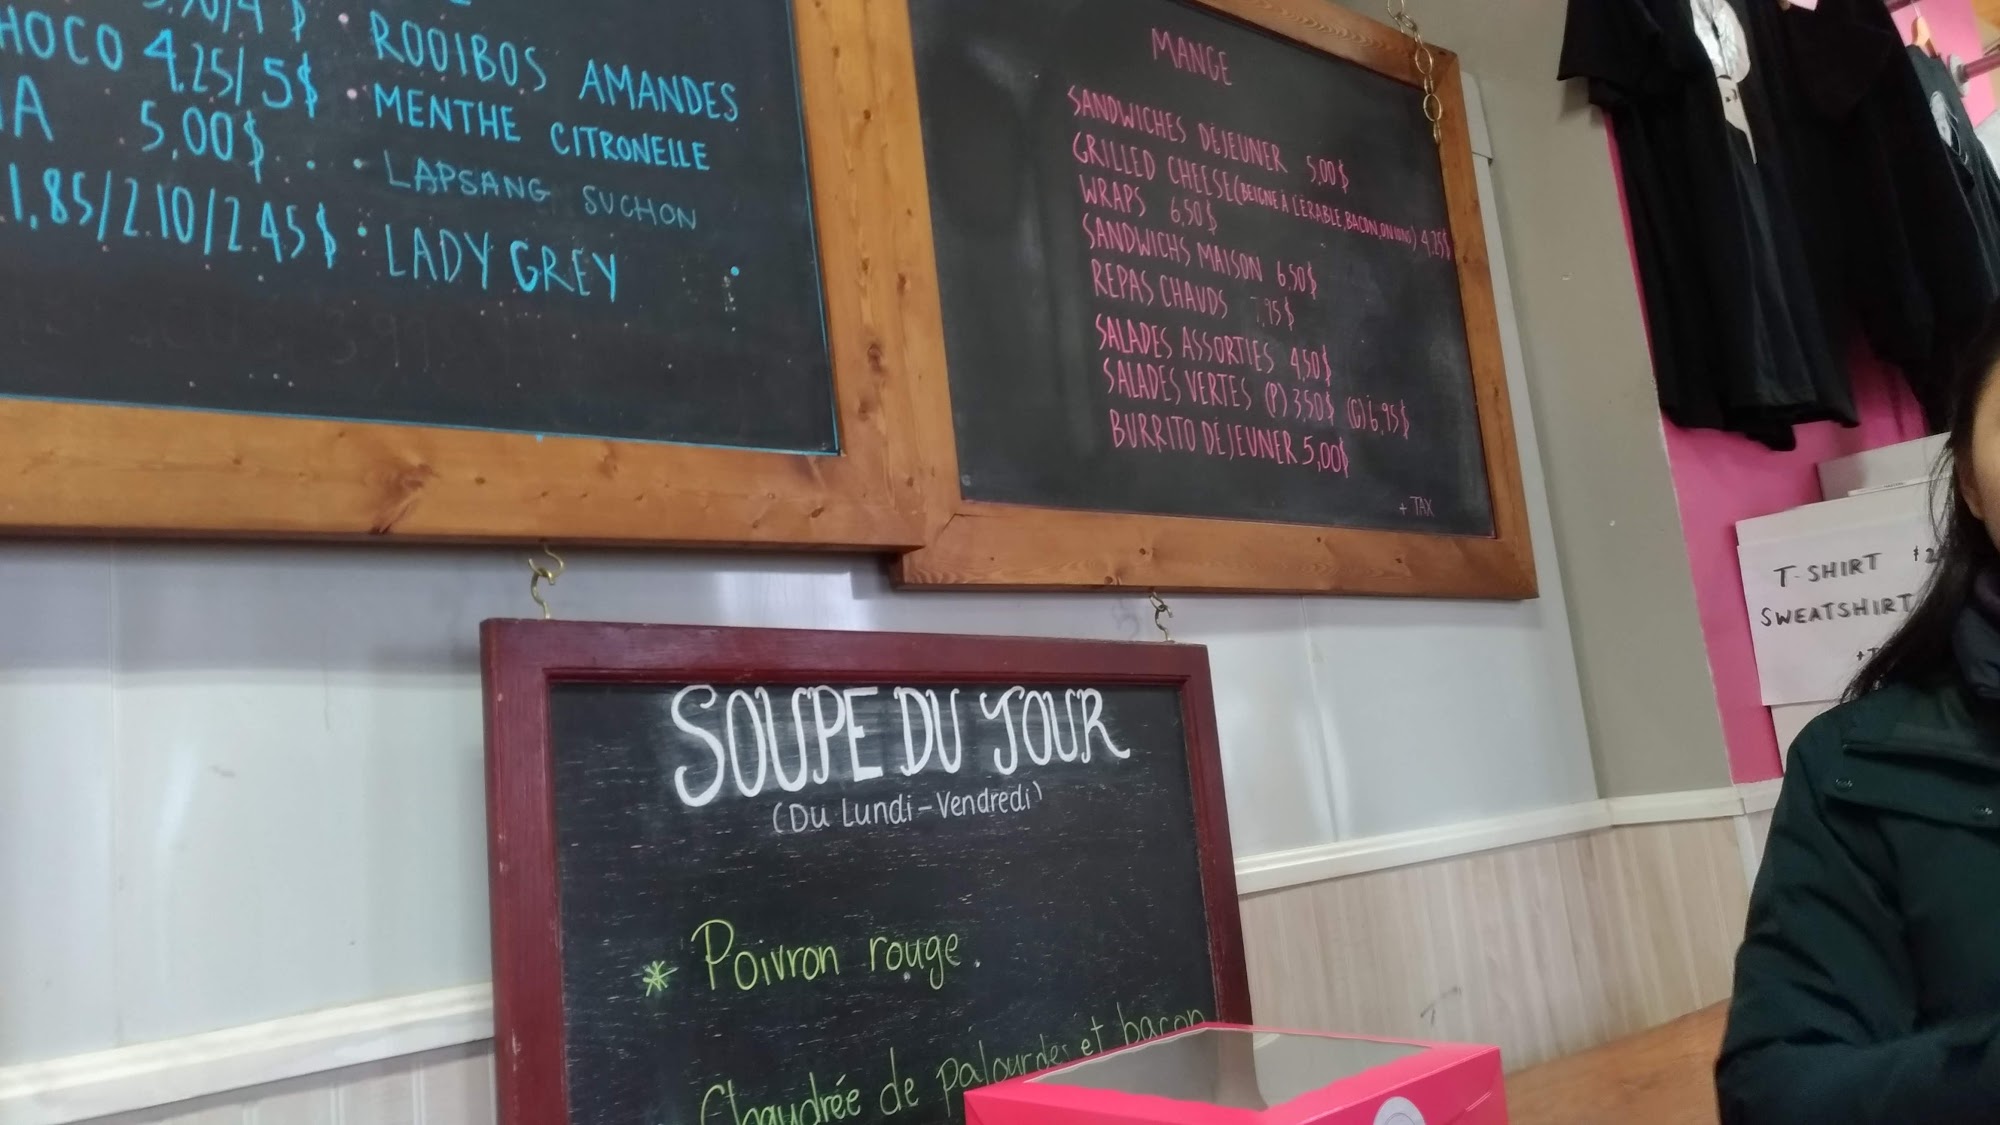 HOCO 4.25/5$
5,00$
1,85/2.10/2.45$
• ROOIBOS AMANDES
• MENTHE CITRONELLE
• LAPSANG SUCHON
• LADY GREY
MANGE
SANDWICHES DÉJEUNER 5,00$
GRILLED CHEESE (BEIGNE À L'ÉRABLE, BACON, ONIONS) 4,25$
WRAPS 6,50$
SANDWICHS MAISON 6,50$
REPAS CHAUDS 7,95$
SALADES ASSORTIES 4,50$
SALADES VERTES (P) 3,50$ (G) 6,95$
BURRITO DÉJEUNER 5,00$
+ TAX
SOUPE DU JOUR
(Du Lundi - Vendredi)
* Poivron rouge
Chaudrée de palourdes et bacon
T-SHIRT $2
SWEATSHIRT